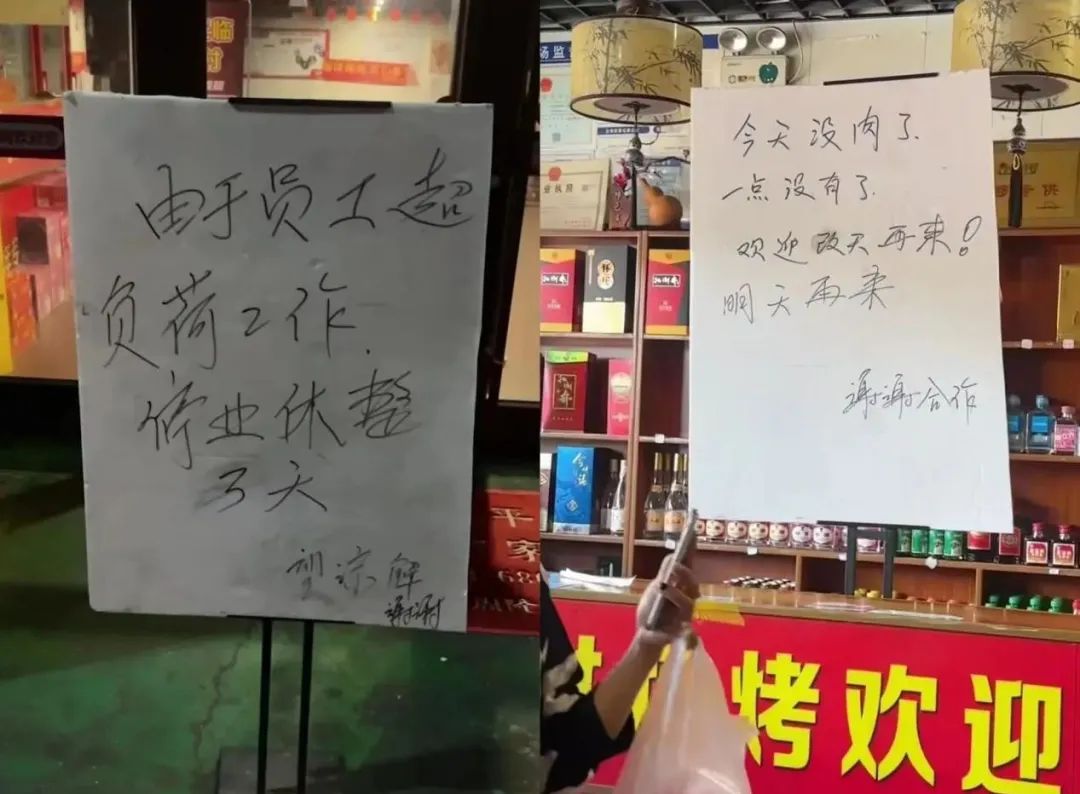 由于员工超
负荷工作.
停业休整
3天
望谅解
谢谢
今天没肉了.
一点没有了.
欢迎改天再来!
明天再来
谢谢合作
烤欢迎